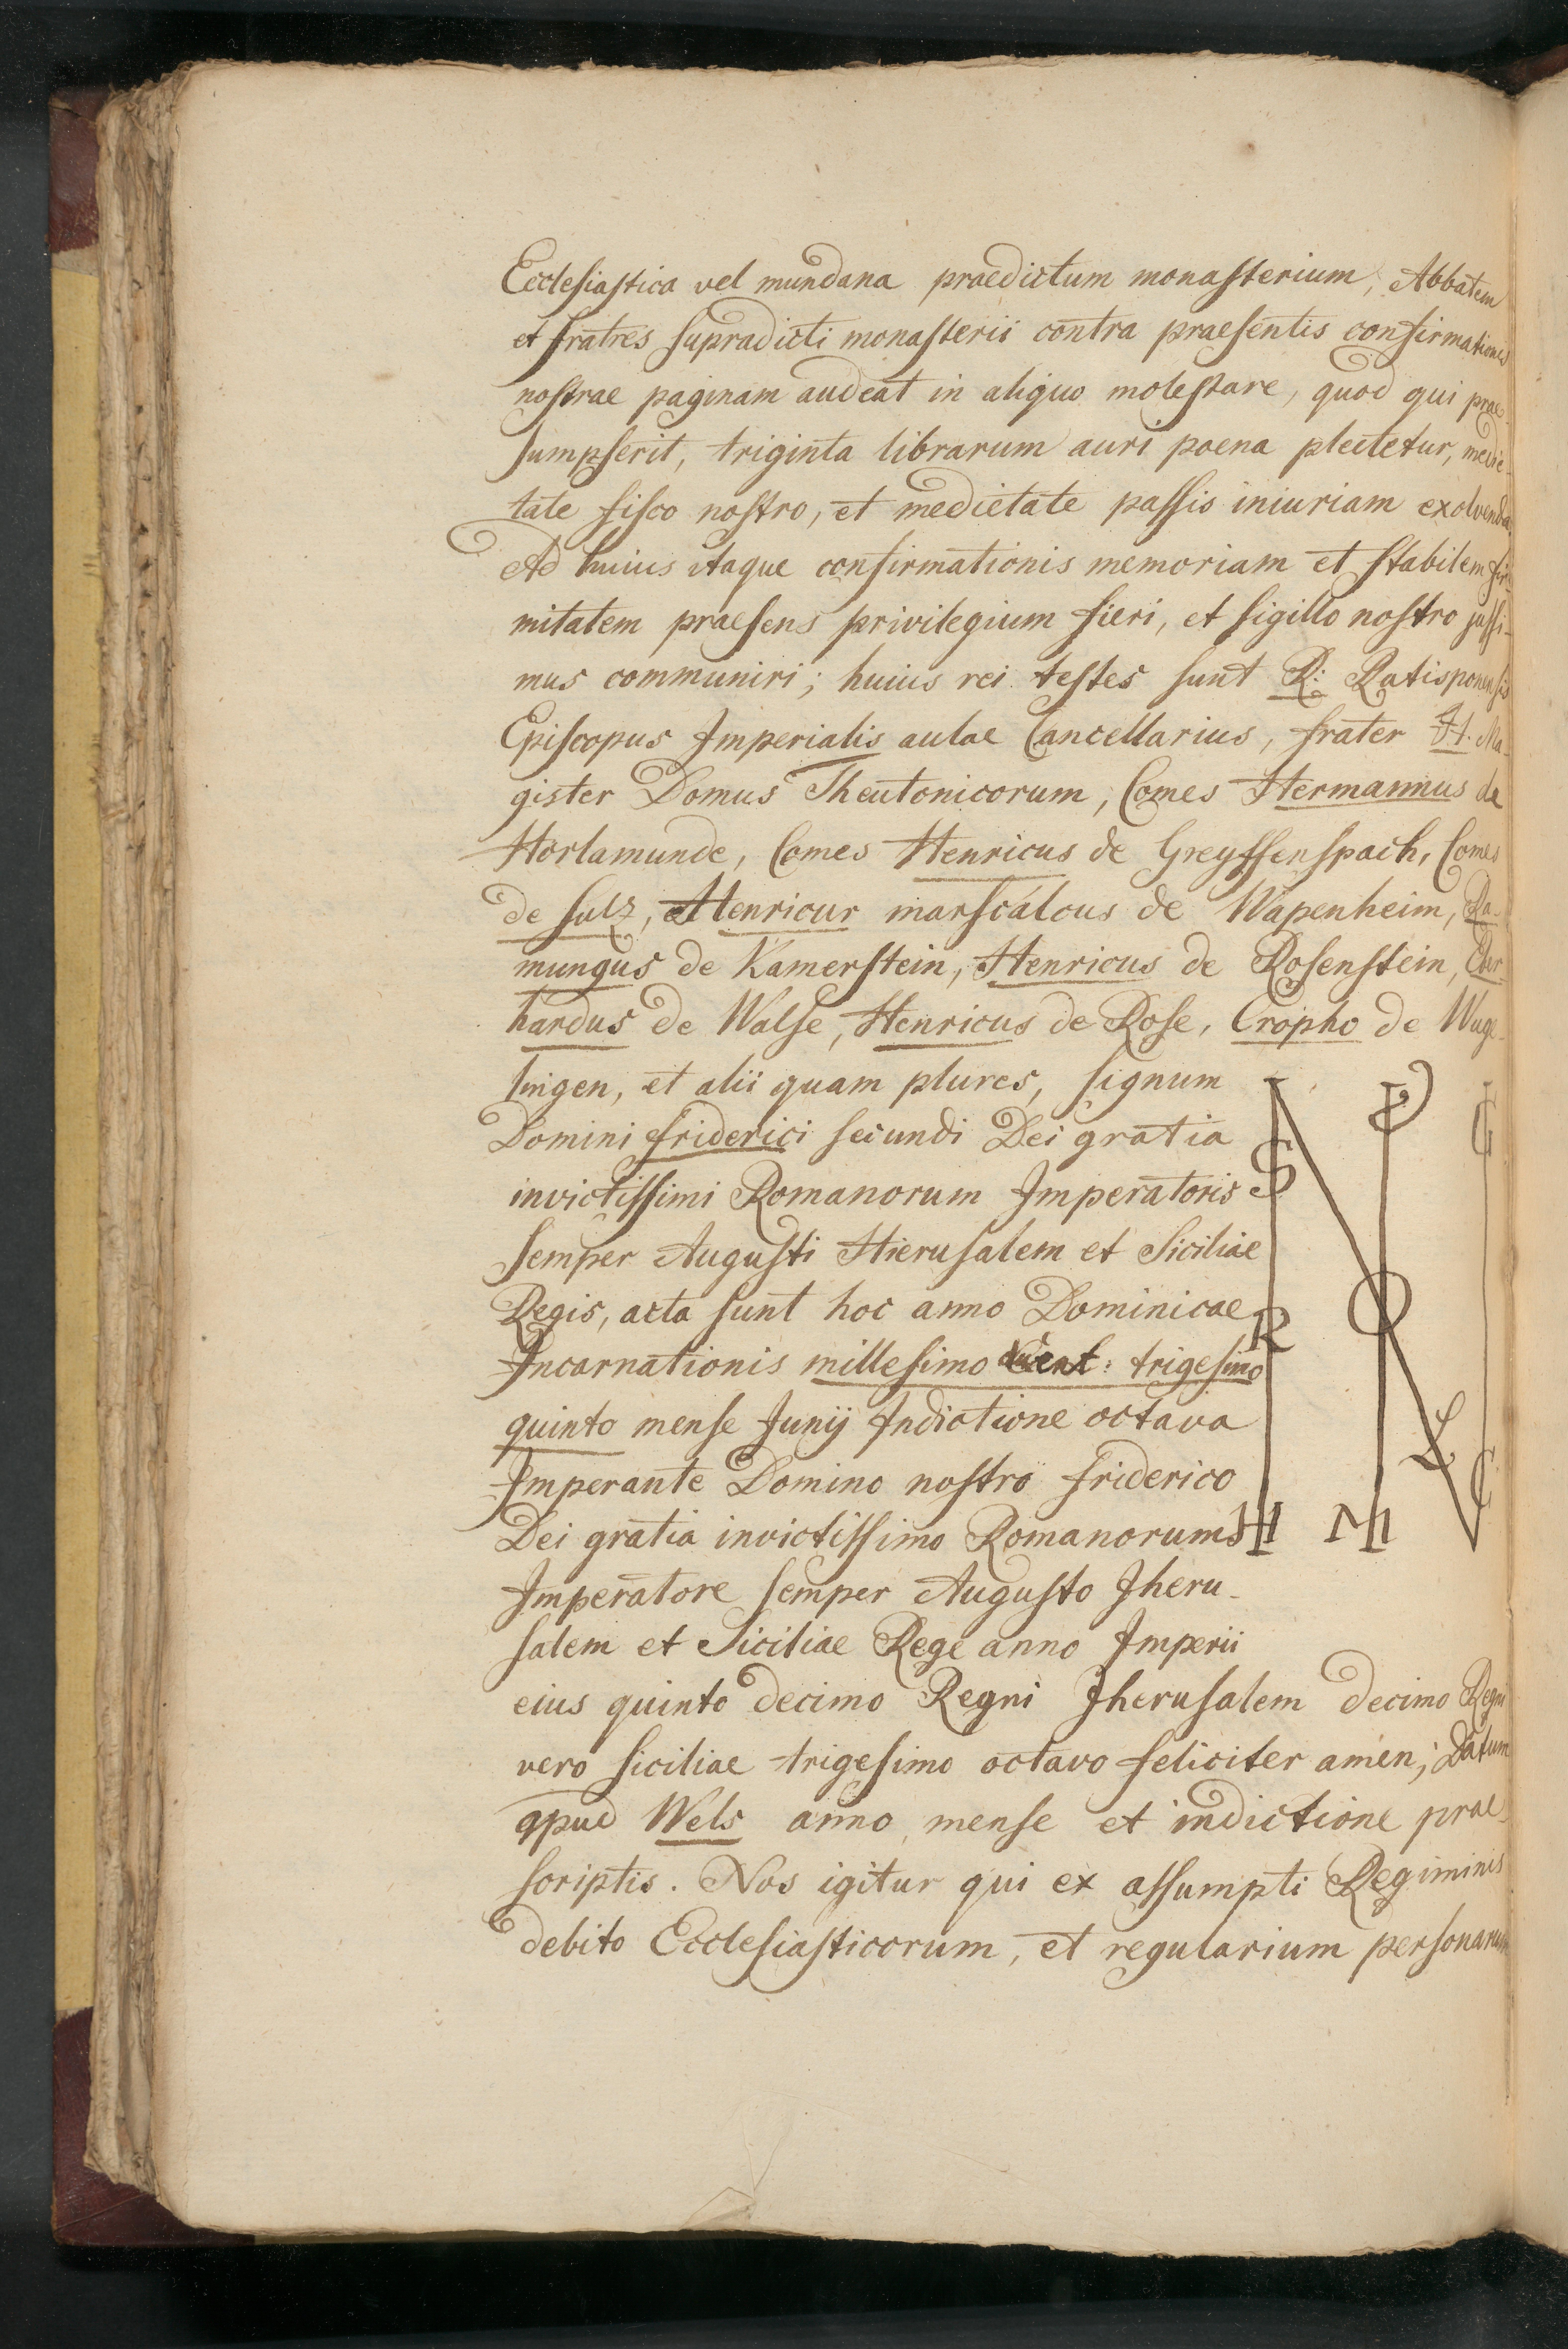 Ecclesiastica vel mundana praedictum monasterium, Abbatem
et fratres supradicti monasterii contra praesentis confirmationis
nostrae paginam audeat in aliquo molestare, quod qui prae-
sumpserit, triginta librarum auri poena plectetur, medie-
tate fisco nostro, et medietate passis iniuriam exolvenda
Ad huius itaque confirmationis memoriam et stabilem fir-
mitatem praesens privilegium fieri, et sigillo nostro jussi-
mus communiri; huius rei testes sunt R: Ratisponensis
Episcopus Imperialis aulae Cancellarius, frater H. Ma-
gister Domus Theutonicorum, Comes Hermannus de
Horlamunde, Comes Henricus de Greyffenspach, Comes
de Sulz, Henricur marscalcus de Wapenheim, Ra-
mungus de Kamerstein, Henricus de Rosenstein, Eber-
hardus de Walse, Henricus de Rose, Cropho de Wuge-
lingen, et alii quam plures, signum
Domini friderici secundi Dei gratia
invictissimi Romanorum Imperatoris
semper Augusti Hierusalem et Siciliae
Regis, acta sunt hoc anno Dominicae
Incarnationis millesimo ducent: trigesimo
quinto mense Junij Indictione octava
Imperante Domino nostro friderico
Dei gratia invictissimo Romanorum
Imperatore semper Augusto Jheru-
salem et Siciliae Rege anno Imperii
eius quinto decimo Regni Jherusalem decimo Regni
vero Siciliae trigesimo octavo feliciter amen; Datum
apud Wels anno mense et indictione prae-
scriptis. Nos igitur qui ex assumpti Regiminis
debito Ecclesiasticorum, et regularium personarum